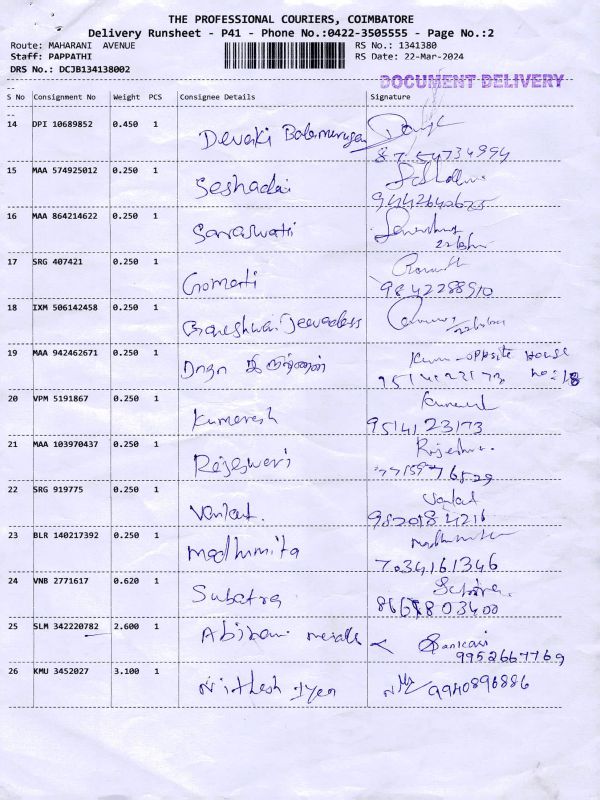 THE PROFESSIONAL COURIERS, COIMBATORE
Delivery Runsheet - P41 - Phone No.:0422-3505555 - Page No.:2
Route: MAHARANI AVENUE RS No.: 1341380
Staff: PAPPATHI RS Date: 22-Mar-2024
DRS No.: DCJB134138002
DOCUMENT DELIVERY
S No Consignment No Weight PCS Consignee Details Signature
14 DPI 10689852 0.450 1 Devaki
15 MAA 574925012 0.250 1 Seshadai
9442640625
16 MAA 864214622 0.250 1 Saraswati
17 SRG 407421 0.250 1 Gomati
9842288910
18 IXM 506142458 0.250 1
19 MAA 942462671 0.250 1 opposite House
9514123173 no:18
20 VPM 5191867 0.250 1 Kumaresh
9514123173
21 MAA 103970437 0.250 1 Rajeswari
22 SRG 919775 0.250 1 Venkat. Venkat
23 BLR 140217392 0.250 1 Madhumita
7034161346
24 VNB 2771617 0.620 1 Subatra
25 SLM 342220782 2.600 1 Abirami metals Sankari
9952667769
26 KMU 3452027 3.100 1 Nithesh Iyen 9940896886